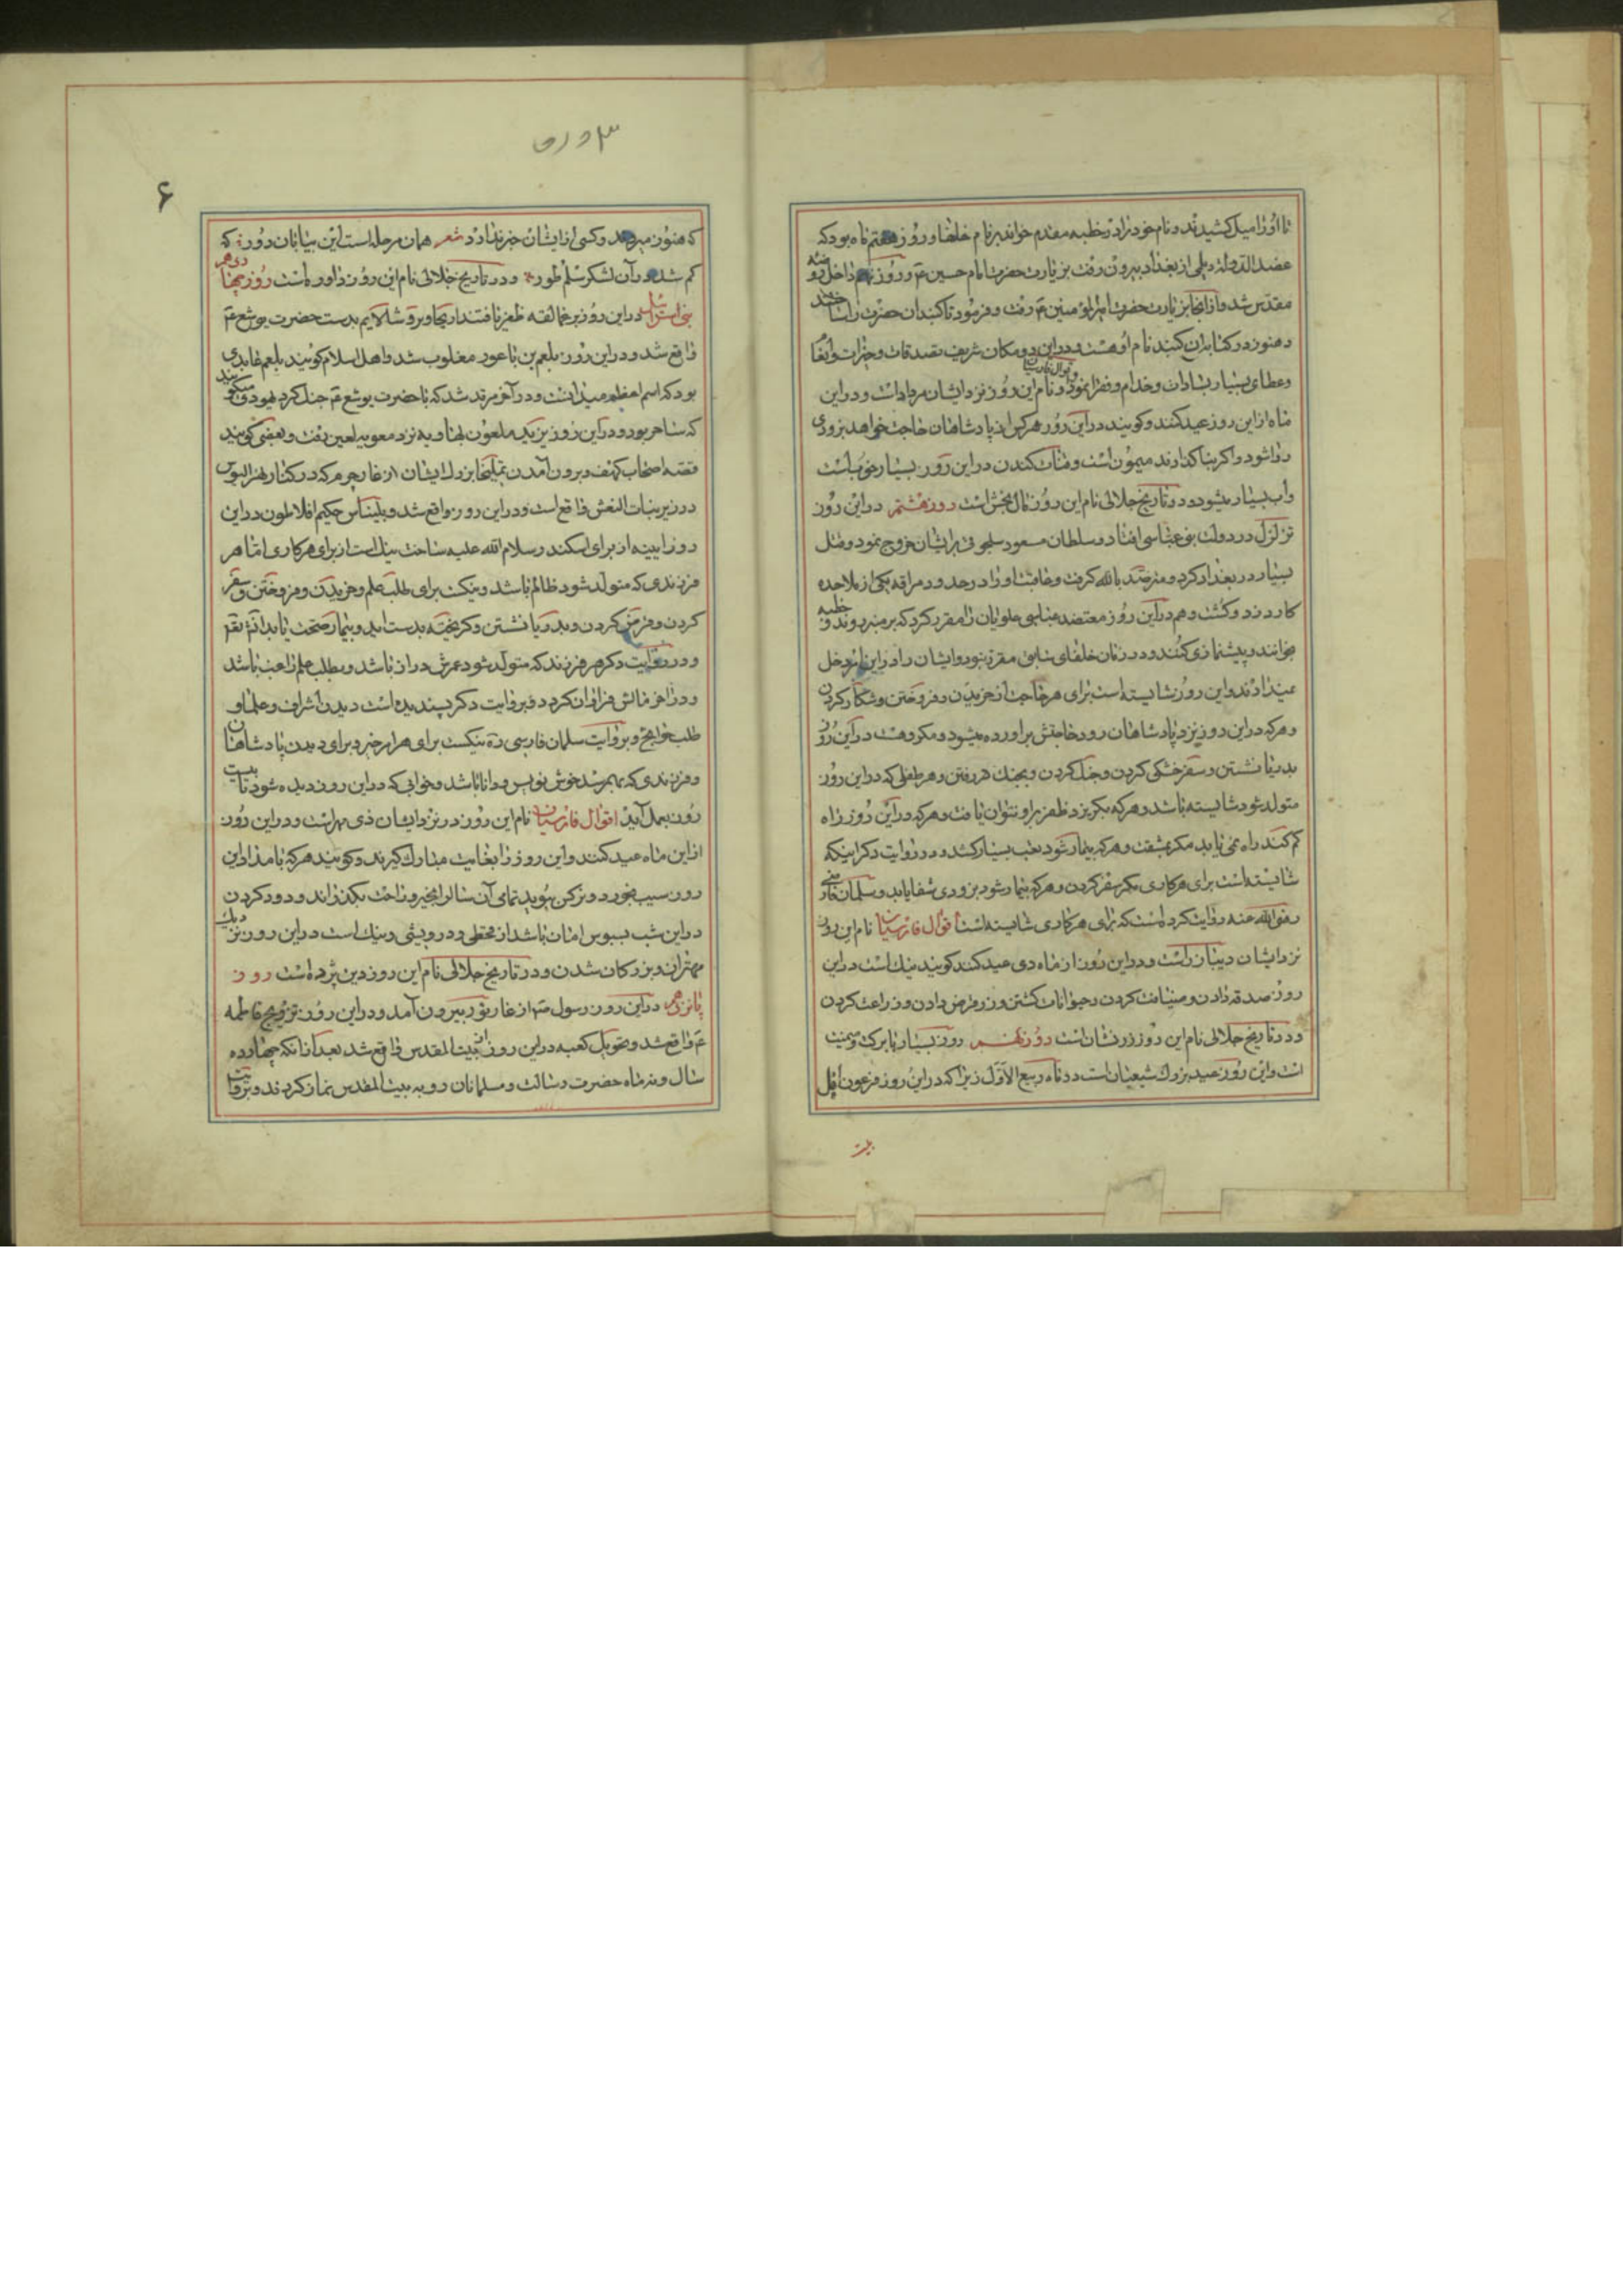 تا او را میل کشیدند و نام خود را در خطبه مقدم خواند بر نام خلفا و روز هفتم ماه بود که
عضد الدوله دیلمی از بغداد بیرون رفت بزیارت حضرت امام حسین ع و روز نهم داخل روضه
مقدس شد و از آنجا بزیارت حضرت امیرالمؤمنین ع رفت و فرمود تا گنبدان حضرت را ساختند
و هنوز در کتابه آن گنبد نام او هست و در این دو مکان شریف تصدقات و خیرات
و عطای بسیار بسادات و خدام و فقرا نمود و اقوال فارسیان نام این روز نزد ایشان مرداد است و در این
ماه از این روز عید کنند و گویند در این روز هر کس از پادشاهان حاجت خواهد بزودی
روا شود و اگر بنا گذارند میمون است و قنات کندن در این روز بسیار خوب است
و آب بسیار میشود و در تاریخ جلالی نام این روز مال بخش است روز هشتم در این روز
تزلزل در دولت بنی عباسی افتاد و سلطان مسعود سلجوقی بر ایشان خروج نمود و قتل
بسیار در بغداد کرد و مسترشد بالله گرفت و عاقبت او را در حدود مراغه یکی از ملاحده
کارد زد و کشت و هم در این روز معتضد عباسی علویان را مقرر کرد که بر منبر روند و خطبه
بخوانند و پیشنمازی کنند و در زمان خلفای سابق مقرر نبود و ایشان را در این امر دخل
نمیدادند و این روز شایسته است برای هر حاجت از خریدن و فروختن و شکار کردن
و هر که در این روز نزد پادشاهان رود حاجتش براورده میشود و مکروهست در این روز
بدریا نشستن و سفر خشکی کردن و جنک کردن و بجنک در رفتن و هر طفلی که در این روز
متولد شود شایسته باشد و هر که بگریزد ظفر بر او نتوان یافت و هر که در این روز راه
گم کند راه نمی یابد مگر بمشقت و هر که بیمار شود تعب بسیار کشد و در روایت دگر اینکه
شایسته است برای هر کاری مگر سفر کردن و هر که بیمار شود بزودی شفا یابد و سلمان فارسی
رضی الله عنه روایت کرده است که برای هر کاری شایسته است اقوال فارسیان نام این روز
نزد ایشان دیبآذر است و در این روز از ماه دی عید کنند گویند نیک است در این
روز صدقه دادن و ضیافت کردن و حیوانات کشتن و زر و قرض دادن و زراعت کردن
و در تاریخ جلالی نام این روز زرنشان است روز نهم روز بسیار بابرکت و میمنت
است و این روز عید بزرک شیعیان است در ماه ربیع الاول زیرا که در این روز فرعون اهل
بیت
۳ ورق
۶
که هنوز میروند و کسی از ایشان خبر نداد شعر همان مرحله است این بیابان دور که
گم شد در آن لشکر سلم و تور و در تاریخ جلالی نام این روز داور است روز چهاردهم
بنی اسرائیل در این روز بر عمالقه ظفر یافتند اریحا و بروشالایم بدست حضرت یوشع ع
واقع شد و در این روز بلعم بن باعور مغلوب شد و اهل اسلام گویند بلعم عابدی
بود که اسم اعظم میدانست و در آخر مرتد شد که با حضرت یوشع ع جنک کرد یهودی میگویند
که ساحر بود و در این روز یزید ملعون نزد معویه لعین رفت و بعضی گویند
قصه اصحاب کهف و برون آمدن تملیخا بزرک ایشان از غار که در کنار
در زیر بنات النعش واقع است و در این روز واقع شد و بلیناس حکیم افلاطون در این
روز ایینه از برای اسکندر سلام الله علیه ساخت نیک است از برای هر کاری اما هر
فرزندی که متولد شود ظالم باشد و نیکست برای طلب علم و خریدن و فروختن و سفر
کردن و قرض کردن و بدریا نشستن و گریخته بدست اید و بیمار صحت یابد
و در روایت دگر هر فرزند که متولد شود عمرش دراز باشد و بطلب علم راغب باشد
و در اخر مالش فراوان گردد و بروایت دگر پسندیده است دیدن اشراف و علما و
طلب حوایج و بروایت سلمان فارسی ره نیکست برای هر امر خیر و برای دیدن پادشاهان
و فرزندی که بهم رسد خوش نویس و دانا باشد و خوابی که در این روز دیده شود تا بیست
روز بعمل آید اقوال فارسیان نام این روز در نزد ایشان است و در این روز
از این ماه عید کنند و این روز را بغایت مبارک گیرند و گویند هر که بامداد این
روز سیب بخورد و نرگس ببوید تمامی آن سال را بخیر و راحت بگذراند و دود کردن
در این شب بسوس امان باشد از قحطی و درویشی و نیک است در این روز نزدیک
مهتران و بزرگان شدن و در تاریخ جلالی نام این روز دین پژوه است روز
پانزدهم در این روز رسول ص از غار ثور بیرون آمد و در این روز تزویج فاطمه
ع واقع شد و تحویل کعبه در این روز از بیت المقدس واقع شد بعد از آنکه چهارده
سال و نه ماه حضرت رسالت و مسلمانان رو به بیت المقدس نماز کردند و بروایت